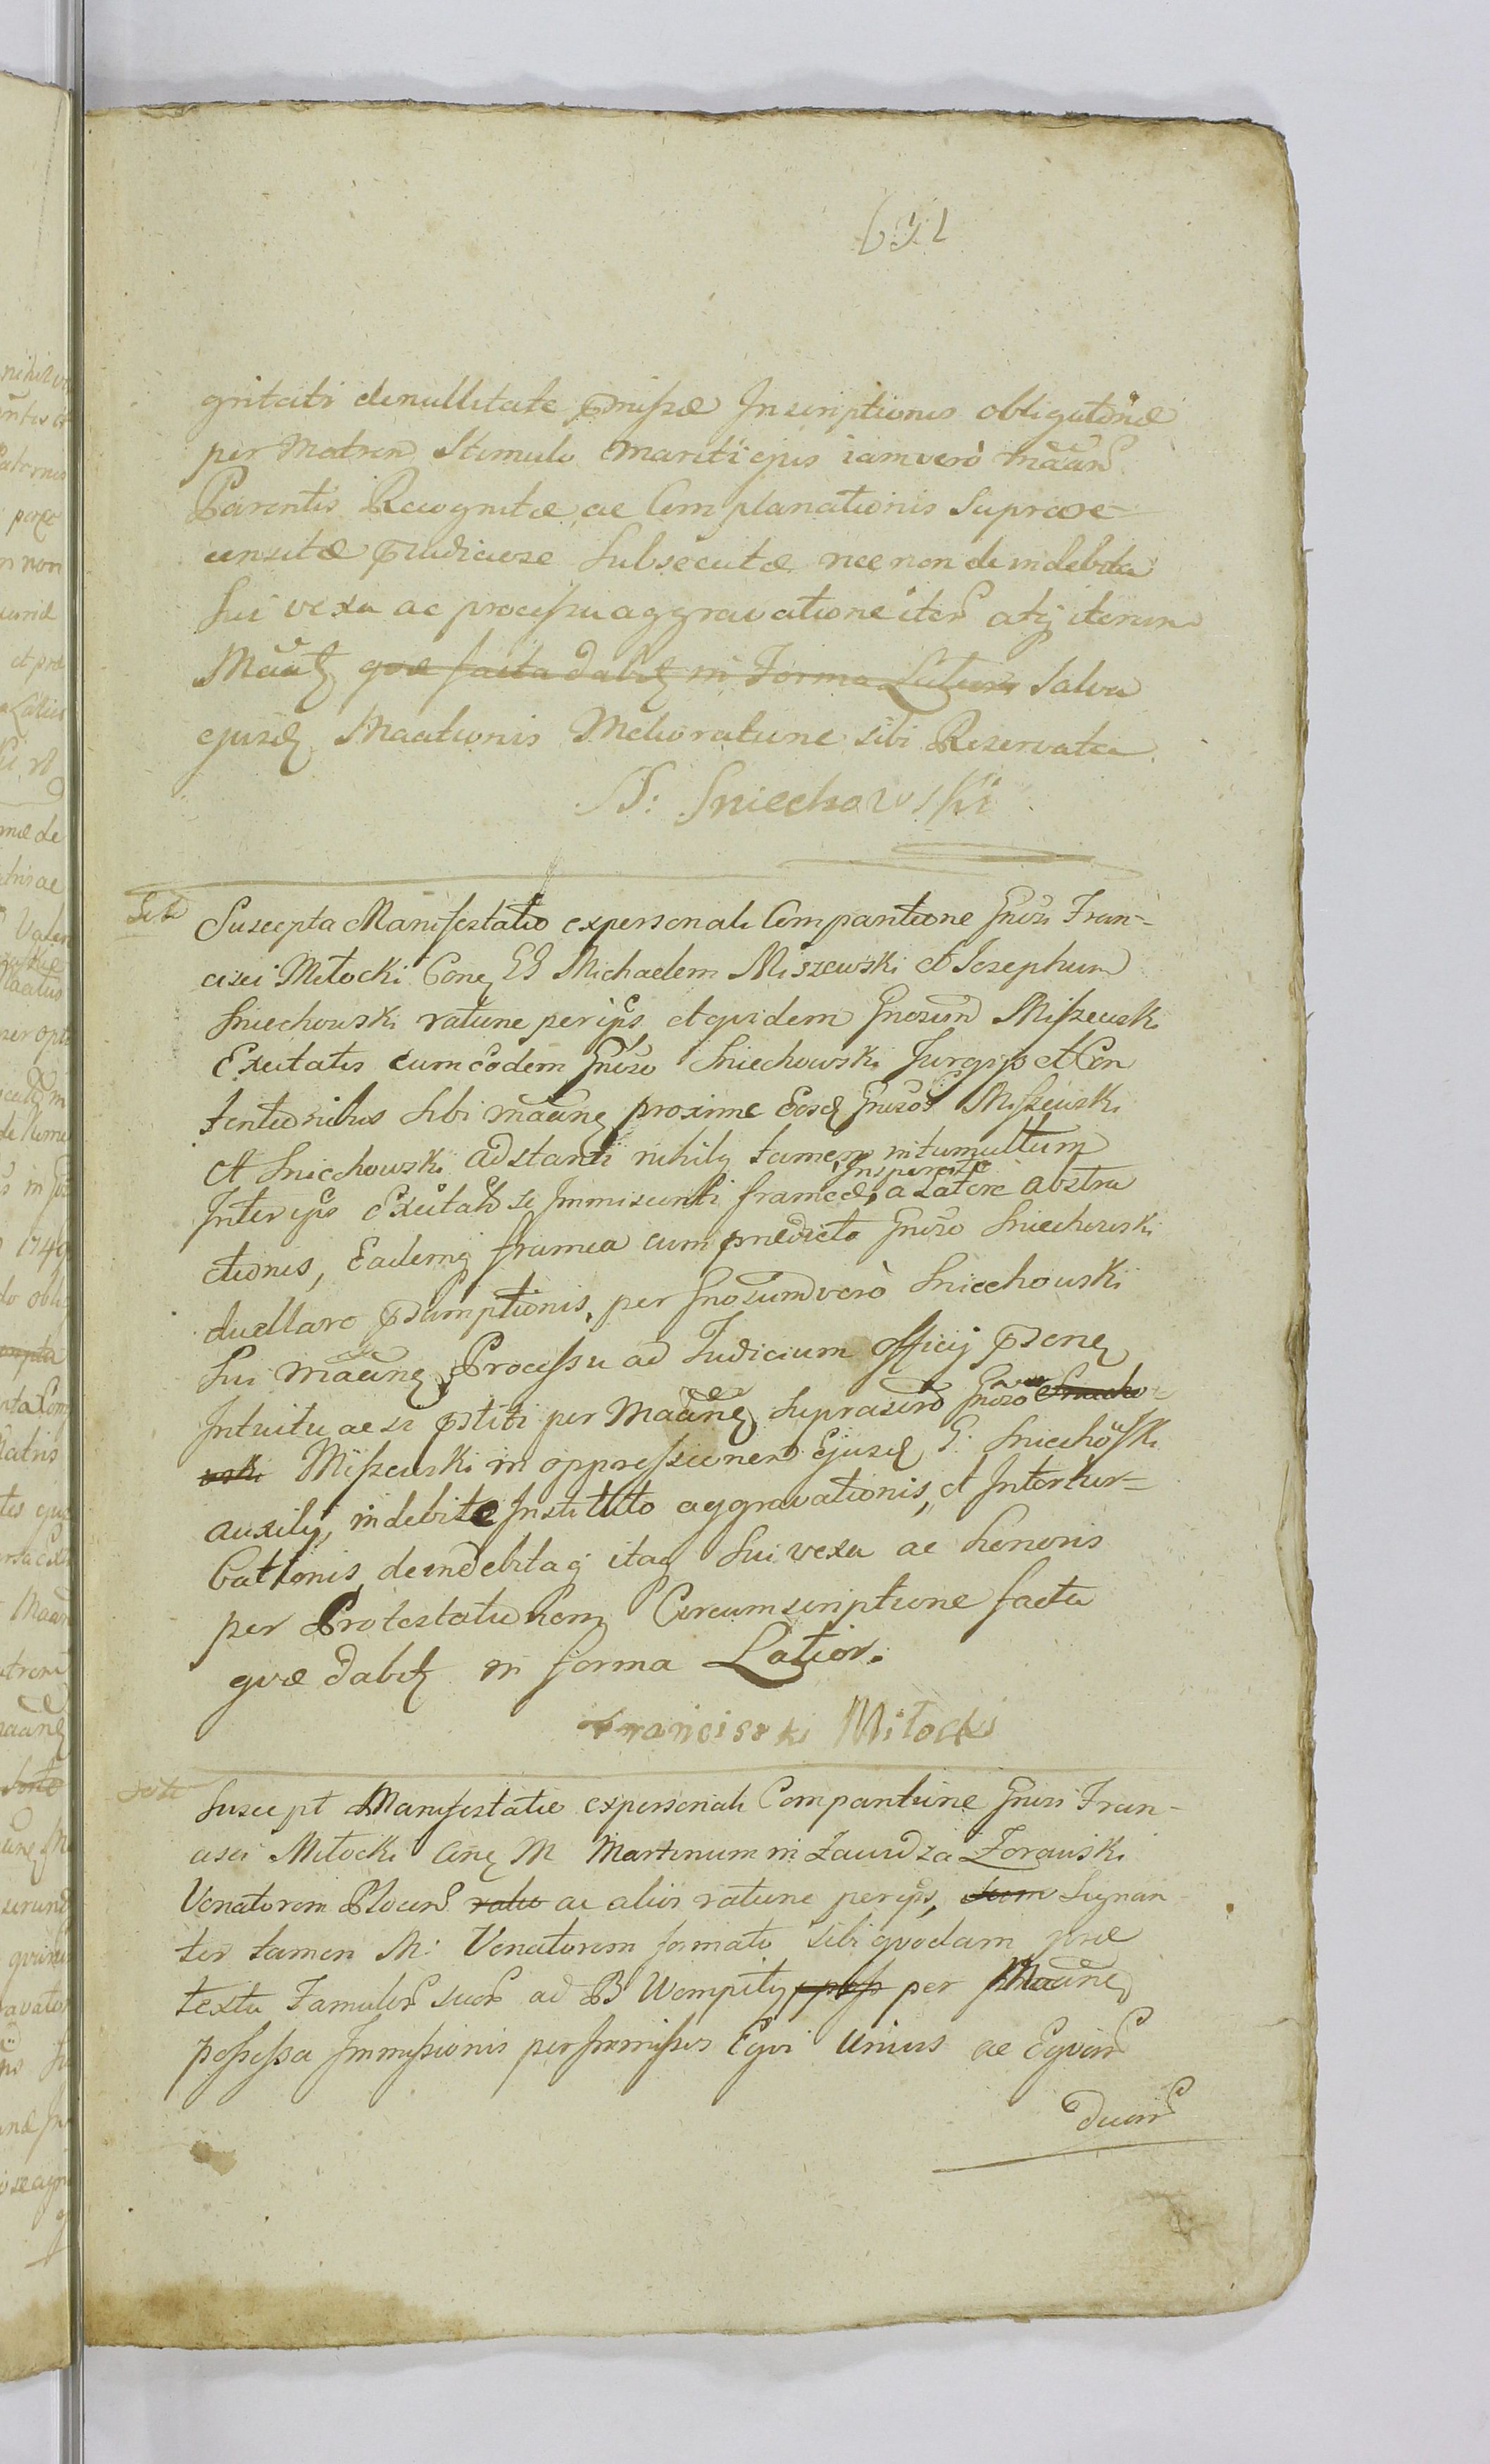 gritati de nullitate pmissæ Inscriptionis obligatõriæ
per Matrem Stimulo Mariti ejus iam verò mãan
Parentis Recognitæ ac Complanationis Supra re-
censitæ pjudiciose Subsecutæ nec non de indebita
Sui vexa ac processu aggravatione iter atq iterum
Maatz quæ facta dabitz in Forma Latiori Salva
ejusd Maationis Melioratione sibi Reservata
J: Sniechowski
Sch
Suscepta Manifestatio ex personali Comparitione Gnosi Fran-
cisci Miłocki Conq GG Michaelem Miszewski et Josephum
Sniechowski ratione per ipš et quidem Gnosum Miszewski
Excitatis cum eodem Gnoso Sniechowski Jurgijs et Con
tentionibus Sibi mãanq proxime Eosd Gnosos Miszewski
et Sniechowski adstanti nihilq tamen in tumultum
Inter ips Excitatu se Immiscenti frameæ, Insperate a Latere abstra
ctionis, Eademq framea cum prædicto Gnoso Sniechowski
duellare psumptionis, per Gnosum verò Sniechowski
Sui mãanq Processu ad Judicium Officij psenq
Intuitu ac si pstiti per Mãanq Suprascro Gnoso Sniecho-
wski Miszewski in oppressionem Ejusd G: Sniechoẅski
auxilij, indebite Instituto aggravationis, et Interhur-
bationis, de indebitaq itaq Sui vexa ac honoris
per Protestationem Circumscriptione facta
quæ dabitz in forma Latior.
Franciszki Miłocki
Sch
Suscept Manifestatio ex personali Comparitione Gnosi Fran-
cisci Miłocki Conq M Martinum in Zawidza Zorawski
Venatorem Plocen ratio ac aliis ratione per ips, tum Signan
ter tamen M: Venatorem formato sibi quodam præ
textu Famulor suor ad B Wempiły poss per Mãanq
possessa Immissionis per Immissos Equi Unius ac Equar
Duar